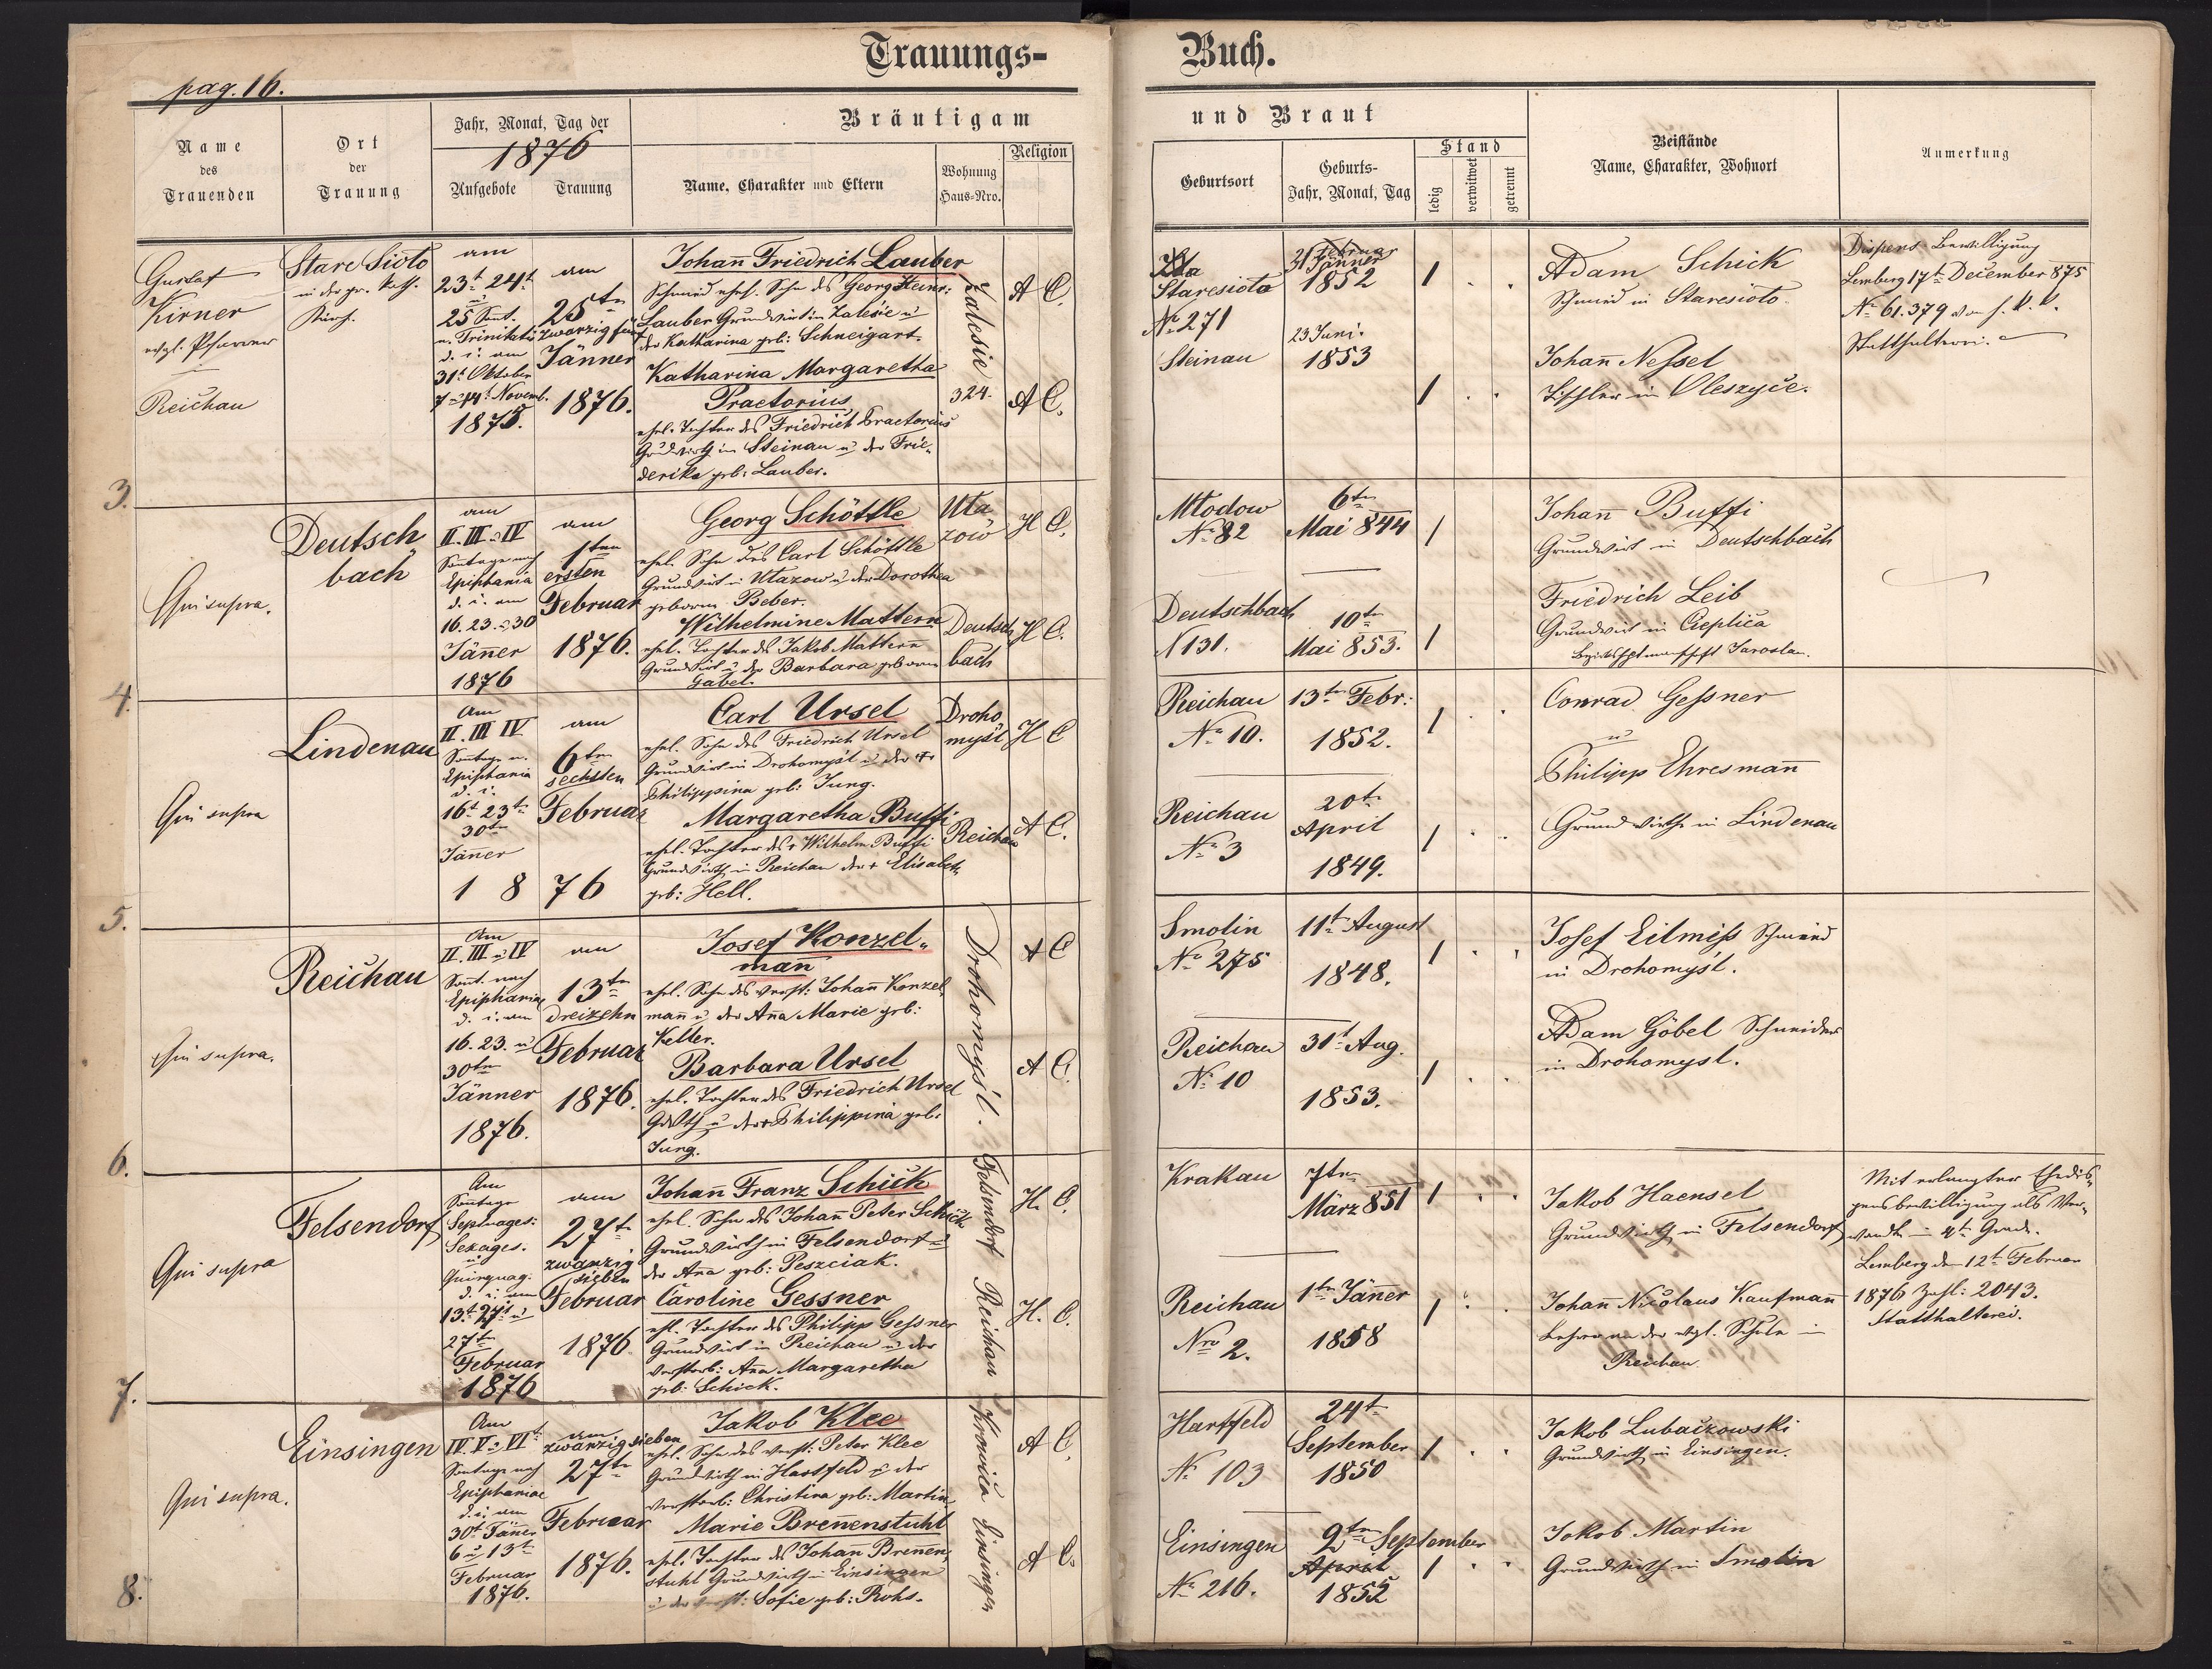 Trauungs- Buch.
pag. 16.
Name des Trauenden
Ort der Trauung
Jahr, Monat, Tag der
1876
Aufgebote
Trauung
Bräutigam und Braut
Name, Charakter und Eltern
Wohnung Haus-Nro.
Religion
Geburtsort
Geburts-
Jahr, Monat, Tag
Stand
ledig
verwitwet
getrennt
Beistände
Name, Charakter, Wohnort
Anmerkung
Gustaf
Kirner
evgl. Pfarrer
Reichau
Stare Sioto
in der gr. kath.
Kirch.
am
23t 24t
25 Sont.
n. Trinitatis
d. i. am
31t Oktober
7 u 14t Novemb.
1875.
am
25tn
zwanzig fünf
Jänner
1876.
Johañ Friedrich Lauber
Schmied ehel. Sohn des Georg Heinr:
Lauber Grundwirt in Zalesie u
der Katharina geb: Schneigart.
Katharina Margaretha
Praetorius
ehel. Tochter des Friedrich Praetorius
Grundwirth in Steinau u der Frie-
derika geb: Lauber.
Zalesie
324.
A C.
A C.
Staresioto
No 271
Steinau
31 Februar
Jänner
1852
23 Juni.
1853
1 . .
1 . .
Adam Schick
Schmied in Staresioto.
Johañ Neßel
Tischler in Oleszyce.
Dispens-Bewilligung
Lemberg 17t December 875
No 61.379 von k. k.
Statthalterei.
3.
Qui supra.
Deutsch
bach
am
II. III. u IV
Soñtage nach
Epiphania
d. i. am
16. 23. u 30
Jäñer
1876
am
1ten
ersten
Februar
1876.
Georg Schöttle
ehel. Sohn des Carl Schöttle
Grundwirt in Utazow u der Dorothea
geboren Beber.
Wilhelmine Mattern
ehel. Tochter des Jakob Mattern
Grundwirt u der Barbara geboren
Gabel.
Uta
zow
Deutsch
bach
H C.
H C.
Mtodow
No 82
Deutschbach
N 131.
6tn
Mai 844
10tn
Mai 853.
1
1
Johañ Buffi
Grundwirt in Deutschbach
Friedrich Leib
Grundwirt in Cieplica
Bezirkshptmanschaft Jaroslau.
4.
Qui supra
Lindenau
Am
II. III IV
Soñtage n.
Epiphania
d. i.
16t 23tn
30tn
Jäñer
1876
am
6tn
sechsten
Februar
Carl Ursel
ehel. Sohn des Friedrich Ursel
Grundwirt in Drohomyśl u der +
Philippina geb: Jung.
Margaretha Buffi
ehel. Tochter des + Wilhelm Buffi
Grundwirth in Reichau der + Elisabeth
geb: Hell.
Droho
myśl
Reichau
H C
A C.
Reichau
No 10.
Reichau
No 3
13tn Febr:
1852.
20tn
April
1849.
1 . .
1 . .
Conrad Geßner
u
Philipp Ehresmañ
Grundwirthe in Lindenau
5.
Qui supra.
Reichau
Am
II. III u IV
Soñt. nach
Epiphaniae
d. i. am
16. 23. u
30tn
Jänner
1876.
am
13tn
dreizehn
Februar
1876.
Josef Konzel-
mañ
ehel. Sohn des verst: Johañ Konzel-
mañ u der Aña Marie geb:
Kelter.
Barbara Ursel
ehel. Tochter des Friedrich Ursel
Gdwth u der + Philippina geb:
Jung.
Drohomyśl.
A C
A C.
Smolin
No 275
Reichau
No 10
11tn August
1848.
31t Aug.
1853.
1 . .
1 . .
Josef Eilmiß Schmied
in Drohomyśl.
Adam Göbel Schneider
in Drohomysl.
6.
Qui supra
Felsendorf
Am
Soñtage
Septuages:
Sexages.
u
Quinquag.
d. i. am
13t 20t u
27tn
Februar
1876
am
27tn
zwanzig
sieben
Februar
1876
Johañ Franz Schick
ehel. Sohn des Johañ Peter Schick
Grundwirth in Felsendorf u
der Aña geb: Peszciak.
Caroline Gessner
ehl. Tochter des Philipp Geßner
Grundwirt in Reichau u der
verstorb: Aña Margaretha
geb: Schick.
Felsendorf
Reichau
H. C.
H. C.
Krakau
Reichau
Nro 2.
7tn
März 851
1tn Jäñer
1858
1 . .
1 . .
Jakob Haensel
Grundwirth in Felsendorf
Johañ Nicolaus Kaufmañ
Lehrer an der evgl. Schule in
Reichau.
Mit erlangter Ehedis-
pensbewilligung als Ver-
wandte in 4t Grade.
Lemberg den 12t Februar
1876 Zahl: 2043.
Statthalterei.
7.
Qui supra.
Einsingen
Am
IV. V. u VIt
Soñtage nach
Epiphaniae
d. i. am
30t Jäñer
6 u 13t
Februar
1876.
am
zwanzig sieben
27tn
Februar
1876.
Jakob Klee
ehel. Sohn des verst: Peter Klee
Grundwirth in Hartfeld u der
verstorb: Christina geb: Martin
Marie Breñenstuhl
ehel. Tochter des Johañ Breñen-
stuhl Grundwirth in Einsingen
u der verst: Sofie geb: Rohs.
Krowica
Einsingen
A C.
A C.
Hartfeld
No 103
Einsingen
No 216.
24tn
September
1850
9tn September
April
1852
1 . .
1 . .
Jakob Lubaczowski
Grundwirth in Einsingen.
Jakob Martin
Grundwirth in Smolin
8.